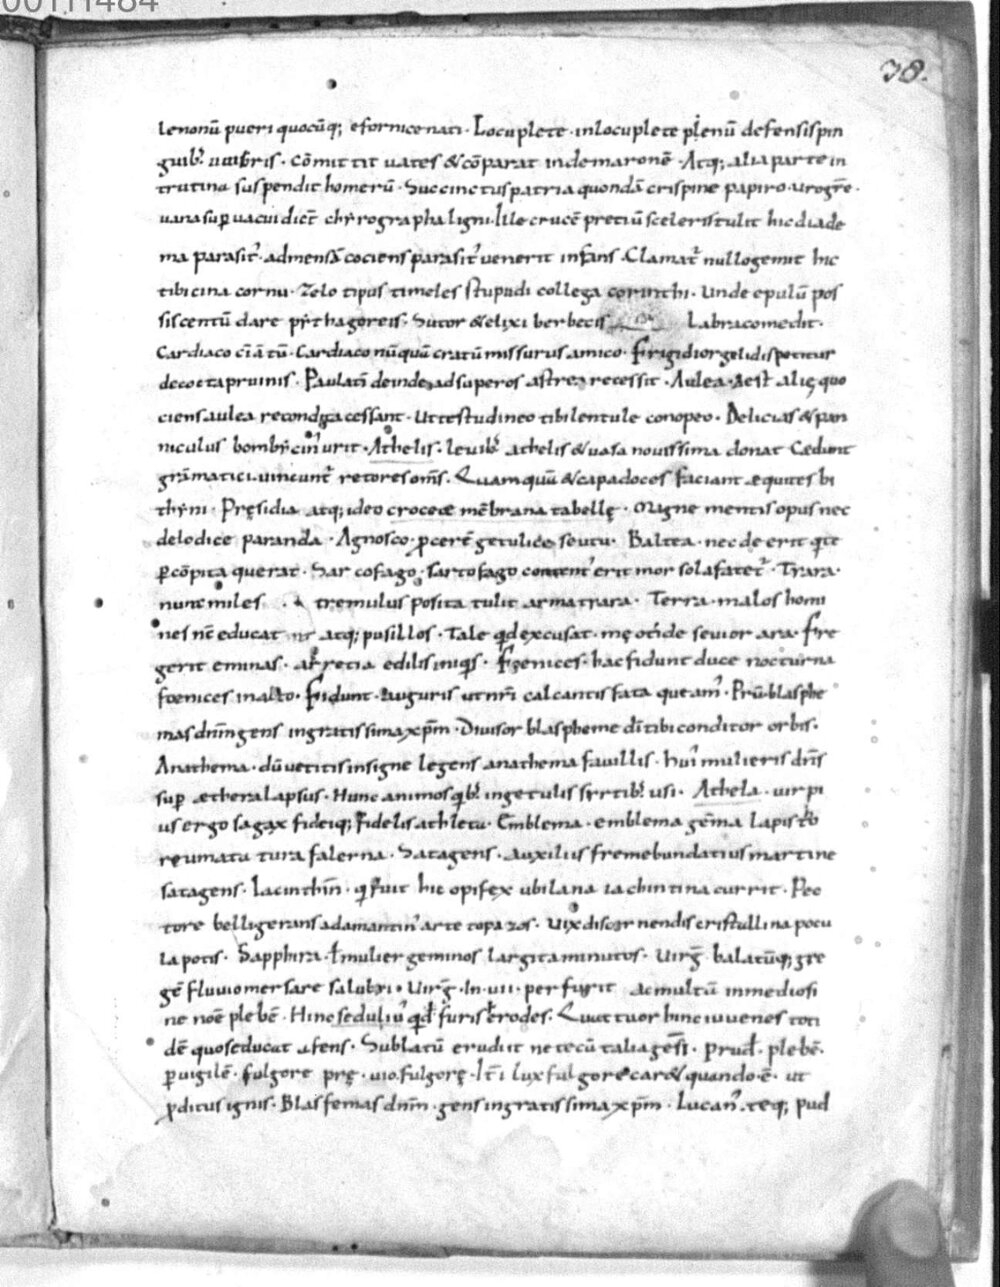 00111484
78.
lenonū pueri quocūq; e fornice nati · Locuplete · inlocuplete plenū defensis pin
guib; umbris · cōmittit uates & cōparat inde maronē · Atq; alia parte in
trutina suspendit homerū · Succinctus patria quondā crispine papiro ·
uana sup uacui dict chyrographa ligni · Ille crucē pretiū sceleris tulit hic diade
ma parasit' · ad mensā cociens parasit' uenerit infans · Clamat nullo gemit hic
tibicina cornu · Zelo tipus timeles stupidi collega corinthi · Unde epulū pos
sis centū dare pythagoreis · Sutor & elixi berbecis Labra comedit ·
Cardiaco ciātū · Cardiaco nūquā cratū missurus amico · Frigidior gelidis petitur
decocta pruinis · Paulatī deinde ad superos astrea recessit · Aulea · aest alię quo
ciens aulea recondita cessant · Ut testudineo tibi lentule conopeo · Delicias & pan
niculus bombycin' urit · Athelis · leuib; athelis & uasa nouissima donat Cedunt
grāmatici uincunt retores om̄s · Quamquā & capadoces faciant equites bi
thyni · Pręsidia atq; ideo croceae mēbrana tabellę · Magne mentis opus nec
de lodice paranda · Agnosco · pcerē getulice seutu · Baltea · nec de erit qui te
p cōpita querat · Sarcofago · sarcofago content' erit mor sola fatet · Trara ·
nunc miles tremulus posita tulit arma trara · Terra · malos homi
nes nc̄ educat atq; pusillos · Tale qd excusat · me occide seuior ara · Fre
gerit eminas · arretia edilis iniqs · Foenices · hac fidunt duce nocturna
foenices in alto · Fidunt · Auguris ut nr̄i calcantis fata queam' · Prū · blasphe
mas dnm gens ingratissima xp̄m · Diuisor blaspheme dī tibi conditor orbis ·
Anathema · dū uetitis insigne legens anathema fauillis · hui' mulieris dn̄s
sup aethera lapsus · Hunc animos qb; in getulis syrtib; usi · Athela · uir pi
us ergo sagax fideiq; fidelis athleta · Emblema · emblema gēma lapis
reumata tura falerna · Satagens · Auxiliis fremebundatius martine
satagens · Iacinthin · q fuit hic opifex ubi lana iachintina currit · Pec
tore belligerans adamantin' arte topazos · Uix discernendis cristallina pocu
la potis · Sapphira · mulier geminos largita minutos · Uirg balatūq; gre
gē fluuio mersare salubri · Uirg · In · uii · per furit ac multū in mediosi
ne noē plebē · Hinc seduliu' qd furis erodes · Quattuor hinc iuuenes toti
dē quos educat ufens · Sublatū erudiit ne tecū talia gesti · Prud · plebē ·
puigilē · fulgore pre · uio · fulgorę · lcī lux fulgore car& quando · ē · ut
pditus ignis · Blasfemas dnm · gens ingratissima xp̄m · Lucan' · teq; pud